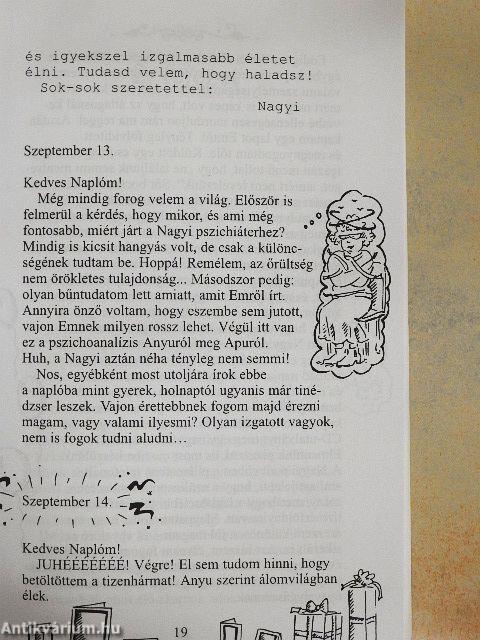 és igyekszel izgalmasabb életet
élni. Tudasd velem, hogy haladsz!
Sok-sok szeretettel:
Nagyi
Szeptember 13.
Kedves Naplóm!
Még mindig forog velem a világ. Először is
felmerül a kérdés, hogy mikor, és ami még
fontosabb, miért járt a Nagyi pszichiáterhez?
Mindig is kicsit hangyás volt, de csak a különc-
ségének tudtam be. Hoppá! Remélem, az őrültség
nem örökletes tulajdonság... Másodszor pedig:
olyan bűntudatom lett amiatt, amit Emről írt.
Annyira önző voltam, hogy eszembe sem jutott,
vajon Emnek milyen rossz lehet. Végül itt van
ez a pszichoanalízis Anyuról meg Apuról.
Huh, a Nagyi aztán néha tényleg nem semmi!
Nos, egyébként most utoljára írok ebbe
a naplóba mint gyerek, holnaptól ugyanis már tiné-
dzser leszek. Vajon érettebbnek fogom majd érezni
magam, vagy valami ilyesmi? Olyan izgatott vagyok,
nem is fogok tudni aludni…
Szeptember 14.
Kedves Naplóm!
JUHÉÉÉÉÉÉÉ! Végre! El sem tudom hinni, hogy
betöltöttem a tizenhármat! Anyu szerint álomvilágban
élek.
19
Antikvárium.hu